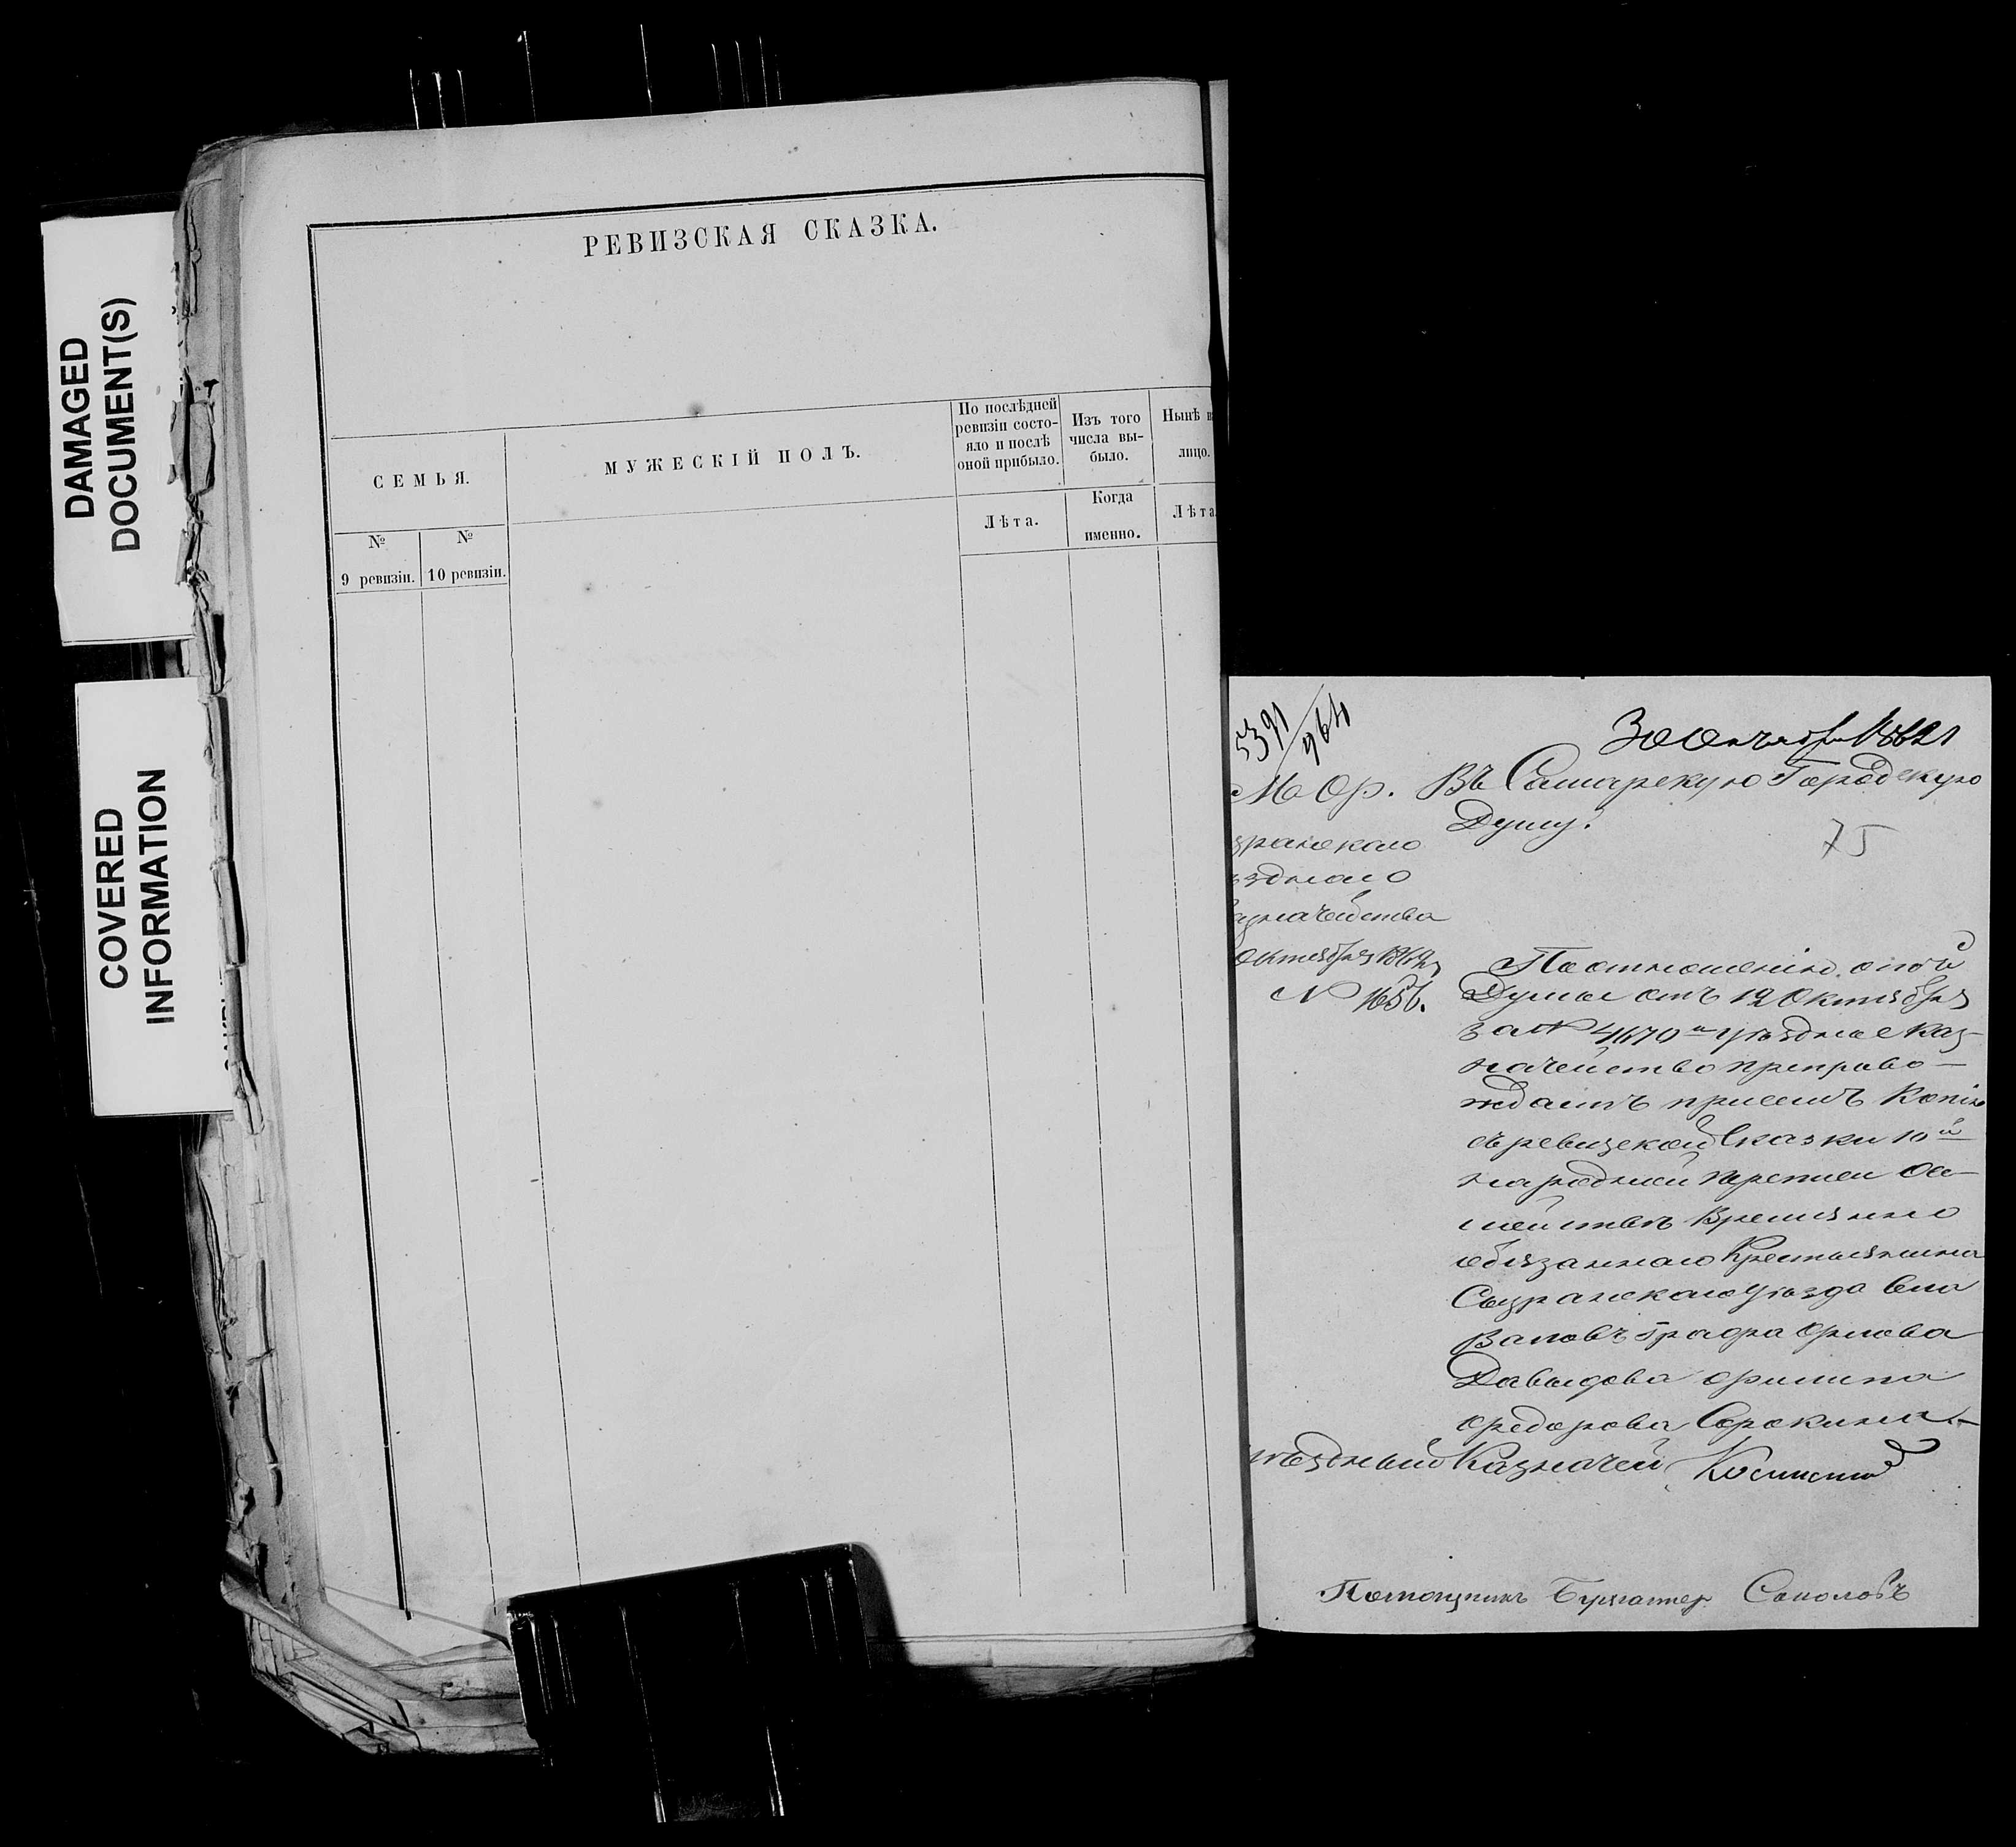 DAMAGED
DOCUMENT(S)
COVERED
INFORMATION
РЕВИЗСКАЯ СКАЗКА.
СЕМЬЯ.
№
9 ревизіи.
№
10 ревизіи.
МУЖЕСКІЙ ПОЛЪ.
По послѣдней
ревизіи состо-
яло и послѣ
оной прибыло.
Лѣта.
Изъ того
числа вы-
было.
Когда
именно.
Нынѣ н
лицо.
Лѣта
5391
964
30 Октября 1862
М. Ф.
зранскаго
ѣзднаго
азначейства
Октября 1862
№ 1656.
Въ Самарскую Городскую
Думу.
75
По отношенію оной
Думы отъ 12 Октября
за № 4670 уѣздное Каз-
начейство препрово-
ждаетъ при семъ Копію
съ ревизской Сказки 10й
народной переписи о се-
мействѣ Временно
обязаннаго Крестьянина
Сызранскаго уѣзда села
Графа Орлова
Давыдова Филипа
Федорова Сорокина.
уѣздный Казначей
Помощникъ Бухгалтер. Соколовъ